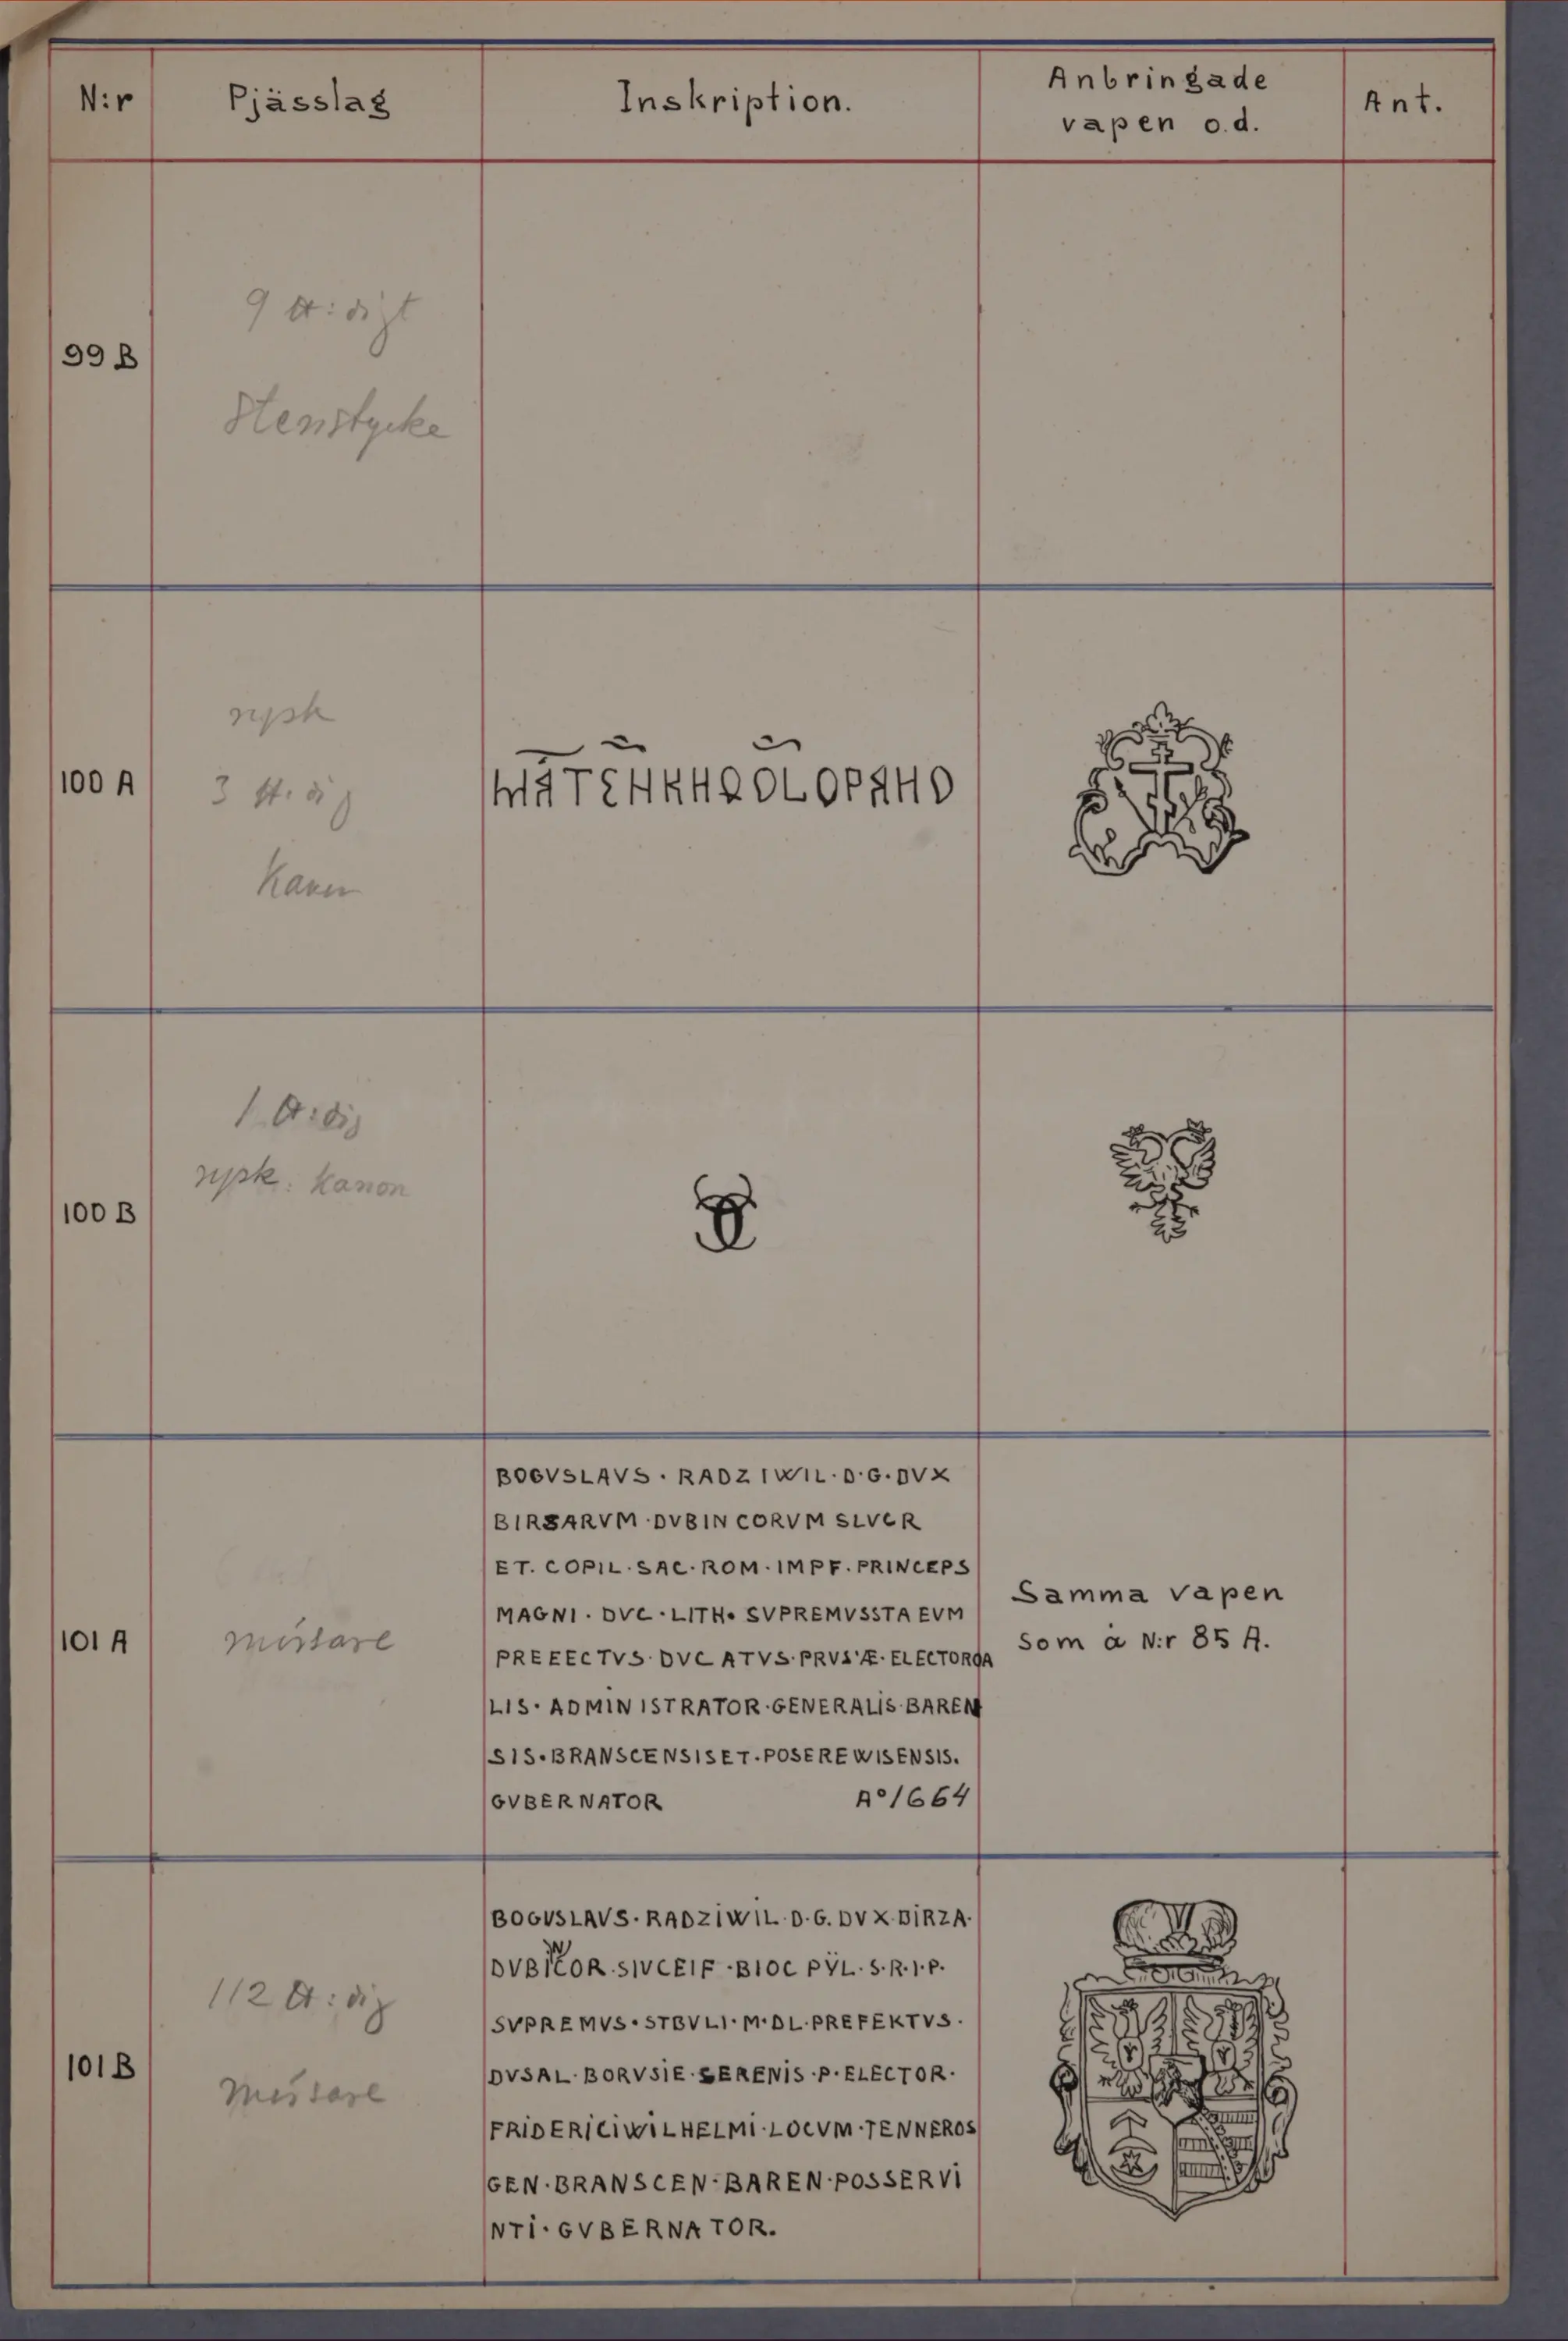 N:r Pjässlag Inskription. Anbringade vapen o.d. Ant.
99 B
9 ℔:digt
Stenstycke
100 A
rysk
3 ℔:dig
Kanon
100 B
1 ℔:dig
rysk. Kanon
101 A
mörsare
BOGVSLAVS · RADZIWIL · D·G·DVX
BIRSARVM · DVBIN CORVM SLVCR
ET. COPIL · SAC · ROM · IMPF · PRINCEPS
MAGNI · DVC · LITH· SVPREMVSSTA EVM
PREEECTVS · DVC ATVS · PRVS'Æ · ELECTOROA
LIS · ADMINISTRATOR · GENERALIS · BAREN
SIS · BRANSCENSISET · POSEREWISENSIS.
GVBERNATOR A° 1664
Samma vapen
som å N:r 85 A.
101 B
112 ℔:dig
Mörsare
BOGVSLAVS · RADZIWIL · D·G. DVX · BIRZA·
DVBINCOR · SIVCEIF · BIOC PŸL · S·R·I·P·
SVPREMVS · STBVLI · M·DL · PREFEKTVS ·
DVSAL · BORVSIE · SERENIS · P · ELECTOR ·
FRIDERICIWILHELMI · LOCVM · TENNEROS
GEN · BRANSCEN · BAREN · POSSERVI
NTI · GVBERNATOR.